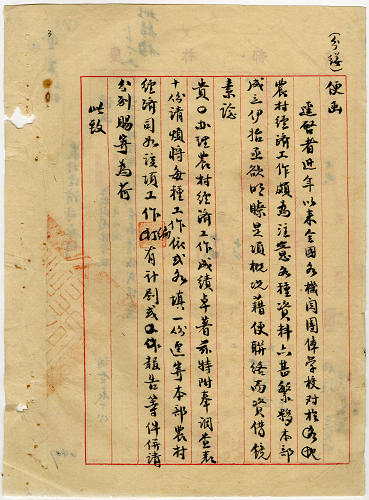 (分送)
便函
逕啓者近年以來全國各機関團体學校對於
農村經濟工作頗為注意各種資料亦甚繁夥本部
成立伊始亟欲明瞭是項概况藉便聯絡而資借鏡
素諗
貴○办理農村經濟工作成績卓著茲特附奉調查表
十份請煩將每種工作依式各填一份逕寄本部農村
經濟司如該項工作編有計劃或工作報告等件併請
分別賜寄為荷
此致